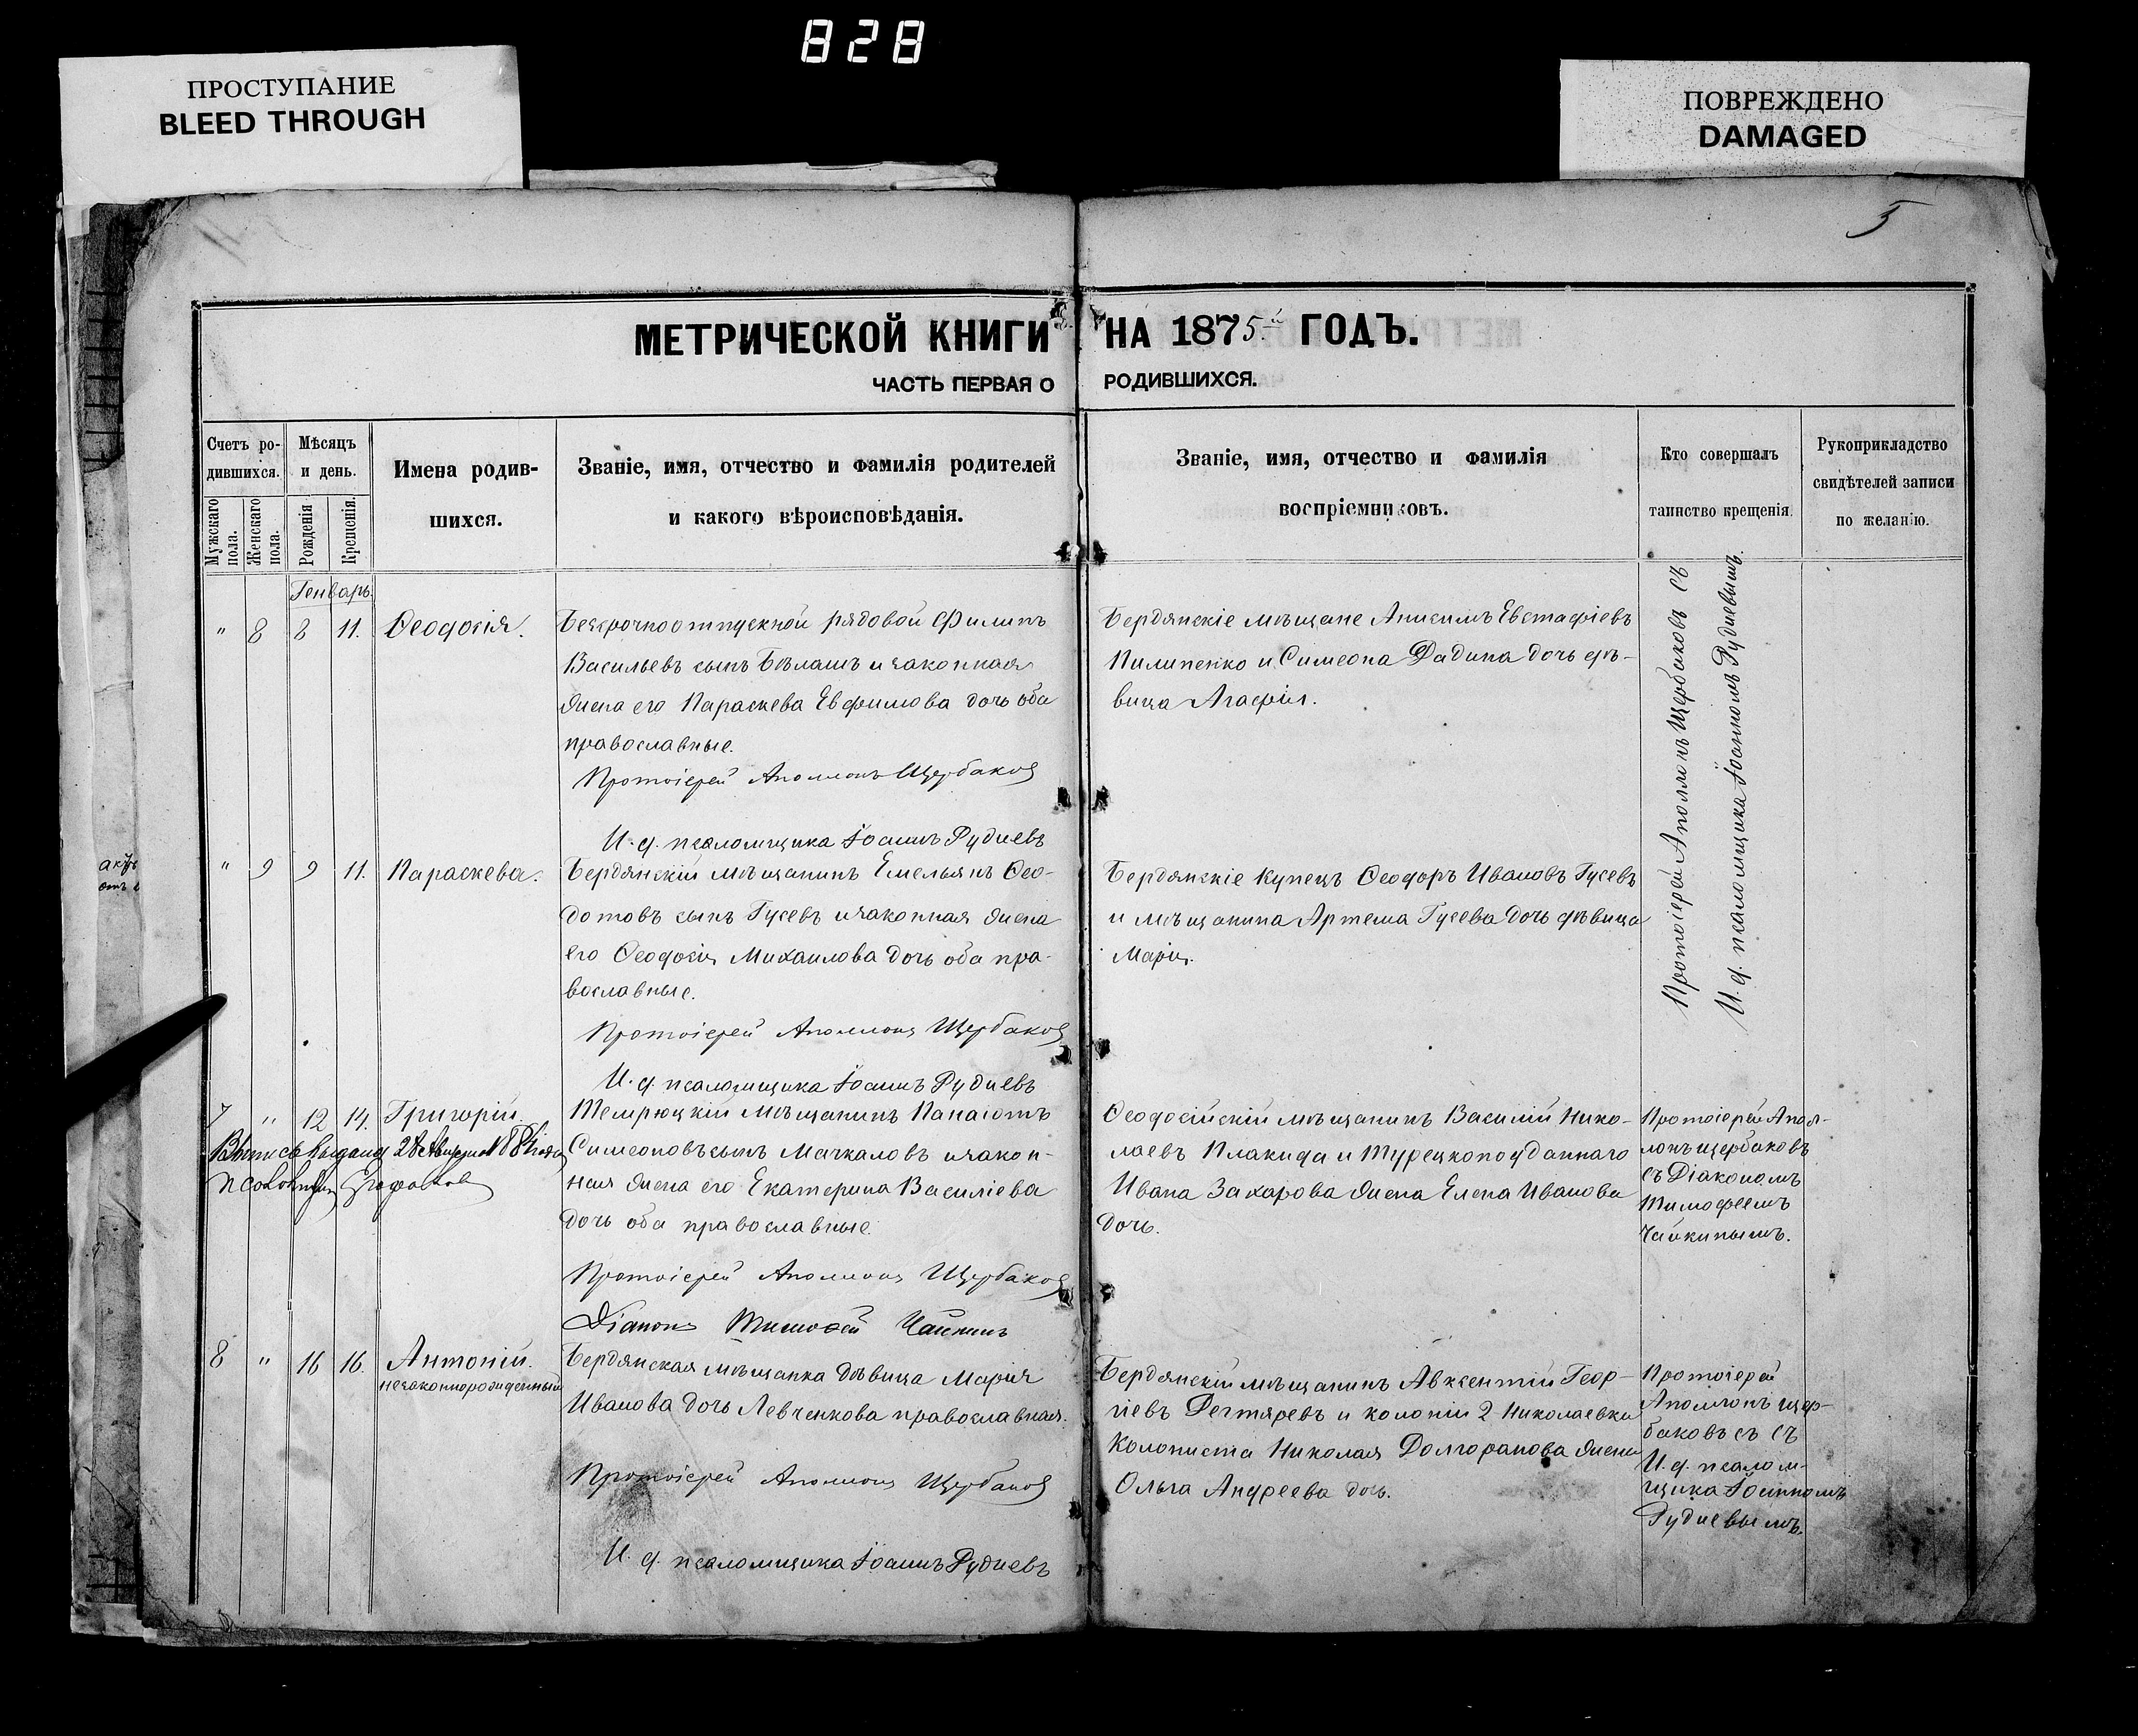 828
ПРОСТУПАНИЕ
BLEED THROUGH
ПОВРЕЖДЕНО
DAMAGED
5
МЕТРИЧЕСКОЙ КНИГИ НА 1875й ГОДЪ.
ЧАСТЬ ПЕРВАЯ О РОДИВШИХСЯ.
Счетъ ро-
дившихся.
Мужскаго пола.
Женскаго пола.
Мѣсяцъ
и день.
Рожденія
Крещенія.
Имена родив-
шихся.
Званіе, имя, отчество и фамилія родителей
и какого вѣроисповѣданія.
Званіе, имя, отчество и фамилія
воспріемниковъ.
Кто совершалъ
таинство крещенія.
Рукоприкладство
свидѣтелей записи
по желанію.
Генварь.
" 8 8 11. Ѳеодосія.
Безсрочноотпускной рядовой Филипъ
Васильевъ сынъ Бѣлашъ и законная
жена его Параскева Евфимова дочь оба
православные.
Протоіерей Аполлонъ Щербаковъ
И. д. псаломщика Іоаннъ Рудиевъ
Бердянскіе мѣщане Анисимъ Евстафіевъ
Пилипенко и Симеона Дадина дочь дѣ-
вица Агафія.
Протоіерей Аполлонъ Щербаковъ съ
И. д. псаломщика Іоанномъ Рудиевымъ.
" 9 9 11. Параскева.
Бердянскій мѣщанинъ Емельянъ Ѳео-
дотовъ сынъ Гусевъ и законная жена
его Ѳеодосія Михаилова дочь оба пра-
вославные.
Протоіерей Аполлонъ Щербаковъ
И. д. псаломщика Іоаннъ Рудиевъ
Бердянскіе купецъ Ѳеодоръ Ивановъ Гусевъ
и мѣщанина Артема Гусева дочь дѣвица
Марія.
7 " 12 14. Григорій.
Выпись выдана 28 Августа
Темрюцкій мѣщанинъ Панаіотъ
Симеоновъ сынъ Мачкаловъ и закон-
ная жена его Екатерина Василіева
дочь оба православные.
Протоіерей Аполлонъ Щербаковъ
Діаконъ Тимофей Чайкинъ
Ѳеодосійскій мѣщанинъ Василій Нико-
лаевъ Плакида и Турецкоподданнаго
Ивана Захарова жена Елена Иванова
дочь.
Протоіерей Апол-
лонъ Щербаковъ
съ Діакономъ
Тимофеемъ
Чайкинымъ.
8 " 16 16. Антоній.
незаконнорожденный
Бердянская мѣщанка дѣвица Марія
Иванова дочь Левченкова православная.
Протоіерей Аполлонъ Щербаковъ
И. д. псаломщика Іоаннъ Рудиевъ
Бердянскій мѣщанинъ Авксентій Геор-
гіевъ Дегтяревъ и колоніи 2 Николаевки
Колониста Николая Долгоранова жена
Ольга Андреева дочь.
Протоіерей
Аполлонъ Щер-
баковъ съ съ
И. д. псалом-
щика Іоанномъ
Рудиевымъ.